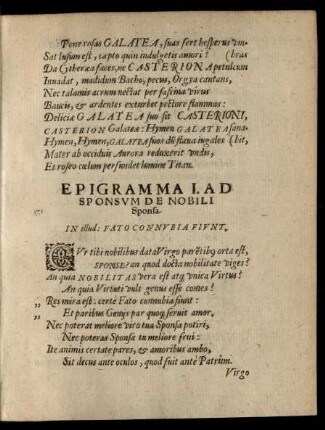 Pone rosas GALATEA, suas fert hesperus vm-
Sat lusum est, cæpto quin indulgetis amori? (bras
Da Cytheræa faces, ne CASTERIONA petulcum
Inuadat, madidum Bacho, pecus, Orgya cantans,
Nec talamis acrum nectat per fascina virus
Baucis, & ardentes exturbet pectore flammas:
Delicia GALATEA suo sit CASTERIONI,
CASTERION Galateæ: Hymen GALATEA sana-
Hymen, Hymen, GALATEA suos dū flaua iugales (bit,
Mater ab occiduis Aurora reduxerit vndis,
Et roseo cælum perfundet lumine Titan.
EPIGRAMMA I. AD
SPONSVM DE NOBILI
Sponsa.
IN illud: FATO CONNVBIA FIVNT.
CVr tibi nobilibus data Virgo parētibꝫ orta est,
SPONSE? an quod docta nobilitate viges?
An quia NOBILITAS vera est atq́ vnica Virtus?
An quia Virtuti vult genus esse comes?
„ Res mira est: certè Fato connubia fiunt:
„ Et paribus Genys par quoq́ seruit amor.
Nec poterat meliore viro tua Sponsa potiri,
Nec poteras Sponsa tu meliore frui:
Ite animis certate pares, & amoribus ambo,
Sit decus ante oculos, quod fuit antè Patrum.
Virgo